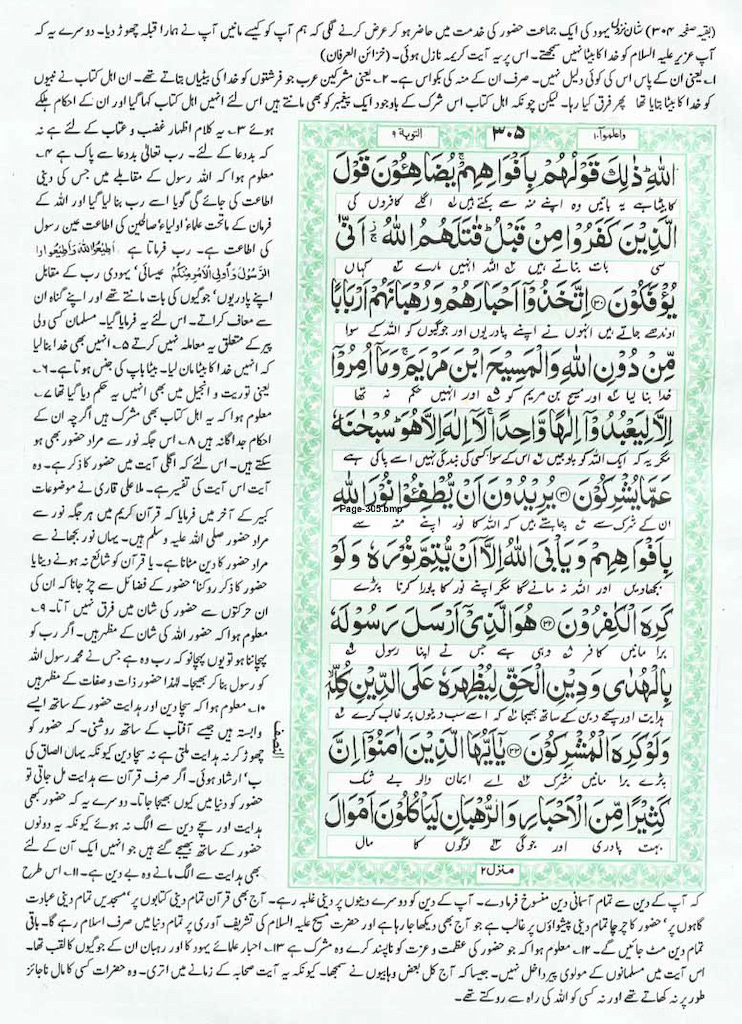 (بقیہ صفحہ ۳۰۴) شان نزول یہود کی ایک جماعت حضور کی خدمت میں حاضر ہو کر عرض کرنے لگی کہ ہم آپ کو کیسے مانیں آپ نے ہمارا قبلہ چھوڑ دیا۔ دوسرے یہ کہ
آپ عزیر علیہ السلام کو خدا کا بیٹا نہیں سمجھتے۔ اس پر یہ آیت کریمہ نازل ہوئی۔ (خزائن العرفان)
۱۔ یعنی ان کے پاس اس کی کوئی دلیل نہیں۔ صرف ان کے منہ کی بکواس ہے۔ ۲۔ یعنی مشرکین عرب جو فرشتوں کو خدا کی بیٹیاں بتاتے تھے۔ ان اہل کتاب نے نبیوں
کو خدا کا بیٹا بتایا تھا پھر فرق کیا رہا۔ لیکن چونکہ اہل کتاب اس شرک کے باوجود ایک پیغمبر کو بھی مانتے ہیں اس لئے انہیں اہل کتاب کہا گیا اور ان کے احکام ہلکے
واعلموا ۱۰ ۳۰۵ التوبۃ ۹
اللّٰہِ ۚ ذٰلِکَ قَوۡلُہُمۡ بِاَفۡوَاہِہِمۡ ۚ یُضَاہِـُٔوۡنَ قَوۡلَ
کا بیٹا ہے یہ باتیں وہ اپنے منہ سے بکتے ہیں اگلے کافروں کی
الَّذِیۡنَ کَفَرُوۡا مِنۡ قَبۡلُ ؕ قٰتَلَہُمُ اللّٰہُ ۚ اَنّٰی
سی بات بناتے ہیں اللہ انہیں مارے کہاں
یُؤۡفَکُوۡنَ ﴿۳۰﴾ اِتَّخَذُوۡۤا اَحۡبَارَہُمۡ وَرُہۡبَانَہُمۡ اَرۡبَابًا
اوندھے جاتے ہیں انہوں نے اپنے پادریوں اور جوگیوں کو اللہ کے سوا
مِّنۡ دُوۡنِ اللّٰہِ وَالۡمَسِیۡحَ ابۡنَ مَرۡیَمَ ۚ وَمَاۤ اُمِرُوۡۤا
خدا بنا لیا اور مسیح بن مریم کو اور انہیں حکم نہ تھا
اِلَّا لِیَعۡبُدُوۡۤا اِلٰـہًا وَّاحِدًا ۚ لَاۤ اِلٰہَ اِلَّا ہُوَ ؕ سُبۡحٰنَہٗ
مگر یہ کہ ایک اللہ کو پوجیں اس کے سوا کسی کی بندگی نہیں اسے پاکی ہے
عَمَّا یُشۡرِکُوۡنَ ﴿۳۱﴾ یُرِیۡدُوۡنَ اَنۡ یُّطۡفِـُٔوۡا نُوۡرَ اللّٰہِ
Page-305.bmp
ان کے شرک سے چاہتے ہیں کہ اللہ کا نور اپنے منہ سے
بِاَفۡوَاہِہِمۡ وَیَاۡبَی اللّٰہُ اِلَّاۤ اَنۡ یُّتِمَّ نُوۡرَہٗ وَلَوۡ
بجھا دیں اور اللہ نہ مانے گا مگر اپنے نور کا پورا کرنا پڑے
کَرِہَ الۡکٰفِرُوۡنَ ﴿۳۲﴾ ہُوَ الَّذِیۡۤ اَرۡسَلَ رَسُوۡلَہٗ
برا مانیں کافر وہی ہے جس نے اپنا رسول
بِالۡہُدٰی وَدِیۡنِ الۡحَقِّ لِیُظۡہِرَہٗ عَلَی الدِّیۡنِ کُلِّہٖ
ہدایت اور سچے دین کے ساتھ بھیجا کہ اسے سب دینوں پر غالب کرے
وَلَوۡ کَرِہَ الۡمُشۡرِکُوۡنَ ﴿۳۳﴾ یٰۤاَیُّہَا الَّذِیۡنَ اٰمَنُوۡۤا اِنَّ
پڑے برا مانیں مشرک اے ایمان والو بے شک
کَثِیۡرًا مِّنَ الۡاَحۡبَارِ وَالرُّہۡبَانِ لَیَاۡکُلُوۡنَ اَمۡوَالَ
بہت پادری اور جوگی لوگوں کا مال
منزل ۲
النصف
ہوئے ۳۔ یہ کلام اظہار غضب و عتاب کے لئے ہے نہ
کہ بددعا کے لئے۔ رب تعالیٰ بددعا سے پاک ہے ۴۔
معلوم ہوا کہ اللہ رسول کے مقابلے میں جس کی دینی
اطاعت کی جائے گی گویا اسے رب بنا لیا گیا اور اللہ کے
فرمان کے ماتحت علماء اولیاء صالحین کی اطاعت عین رسول
کی اطاعت ہے۔ رب فرماتا ہے اَطِیْعُوا اللّٰہَ وَاَطِیْعُوا
الرَّسُوْلَ وَاُولِی الْاَمْرِ مِنْکُمْ عیسائی، یہودی رب کے مقابل
اپنے پادریوں، جوگیوں کی بات مانتے تھے اور اپنے گناہ ان
سے معاف کراتے۔ اس لئے یہ فرمایا گیا۔ مسلمان کسی ولی
پیر کے متعلق یہ معاملہ نہیں کرتے ۵۔ انہیں بھی خدا بنا لیا
کہ انہیں خدا کا بیٹا مان لیا۔ بیٹا باپ کی جنس ہوتا ہے۔ ۶۔
یعنی توریت و انجیل میں بھی انہیں یہ حکم دیا گیا تھا ۷۔
معلوم ہوا کہ یہ اہل کتاب بھی مشرک ہیں اگرچہ ان کے
احکام جداگانہ ہیں ۸۔ اس جگہ نور سے مراد حضور بھی ہو
سکتے ہیں۔ اس لئے کہ اگلی آیت میں حضور کا ذکر ہے۔ وہ
آیت اس آیت کی تفسیر ہے۔ ملا علی قاری نے موضوعات
کبیر کے آخر میں فرمایا کہ قرآن کریم میں ہر جگہ نور سے
مراد حضور صلی اللہ علیہ وسلم ہیں۔ یہاں نور بجھانے سے
مراد حضور کا دین مٹانا ہے۔ یا قرآن کو شائع نہ ہونے دینا یا
حضور کا ذکر روکنا، حضور کے فضائل سے چڑ جانا کہ ان کی
ان حرکتوں سے حضور کی شان میں فرق نہیں آتا۔ ۹۔
معلوم ہوا کہ حضور اللہ کی شان کے مظہر ہیں۔ اگر رب کو
پہچاننا ہو تو یوں پہچانو کہ رب وہ ہے جس نے محمد رسول اللہ
کو رسول بنا کر بھیجا۔ لہٰذا حضور ذات و صفات کے مظہر ہیں
۱۰۔ معلوم ہوا کہ سچا دین اور ہدایت حضور کے ساتھ ایسے
وابستہ ہیں جیسے آفتاب کے ساتھ روشنی۔ کہ حضور کو
چھوڑ کر نہ ہدایت ملتی ہے نہ سچا دین کیونکہ یہاں الصاق کی
ب، ارشاد ہوئی۔ اگر صرف قرآن سے ہدایت مل جاتی تو
حضور کو دنیا میں کیوں بھیجا جاتا۔ دوسرے یہ کہ حضور کبھی
ہدایت اور سچے دین سے الگ نہ ہوئے کیونکہ یہ دونوں
حضور کے ساتھ بھیجے گئے ہیں جو انہیں ایک آن کے لئے
بھی ہدایت سے الگ مانے وہ بے دین ہے۔ ۱۱۔ اس طرح
کہ آپ کے دین سے تمام آسمانی دین منسوخ فرما دے۔ آپ کے دین کو دوسرے دینوں پر دینی غلبہ رہے۔ آج بھی قرآن تمام دینی کتابوں پر، مسجدیں تمام دینی عبادت
گاہوں پر، حضور کا چرچا تمام دینی پیشواؤں پر غالب ہے جو آج بھی دیکھا جا رہا ہے اور حضرت مسیح علیہ السلام کی تشریف آوری پر تمام دنیا میں صرف اسلام رہے گا۔ باقی
تمام دین مٹ جائیں گے۔ ۱۲۔ معلوم ہوا کہ جو حضور کی عظمت و عزت کو ناپسند کرے وہ مشرک ہے ۱۳۔ احبار علمائے یہود کا اور رہبان ان کے جوگیوں کا لقب تھا۔
اس آیت میں مسلمانوں کے مولوی پیر داخل نہیں۔ جیسا کہ آج کل بعض وہابیوں نے سمجھا۔ کیونکہ یہ آیت صحابہ کے زمانے میں اتری۔ وہ حضرات کسی کا مال ناجائز
طور پر نہ کھاتے تھے اور نہ کسی کو اللہ کی راہ سے روکتے تھے۔